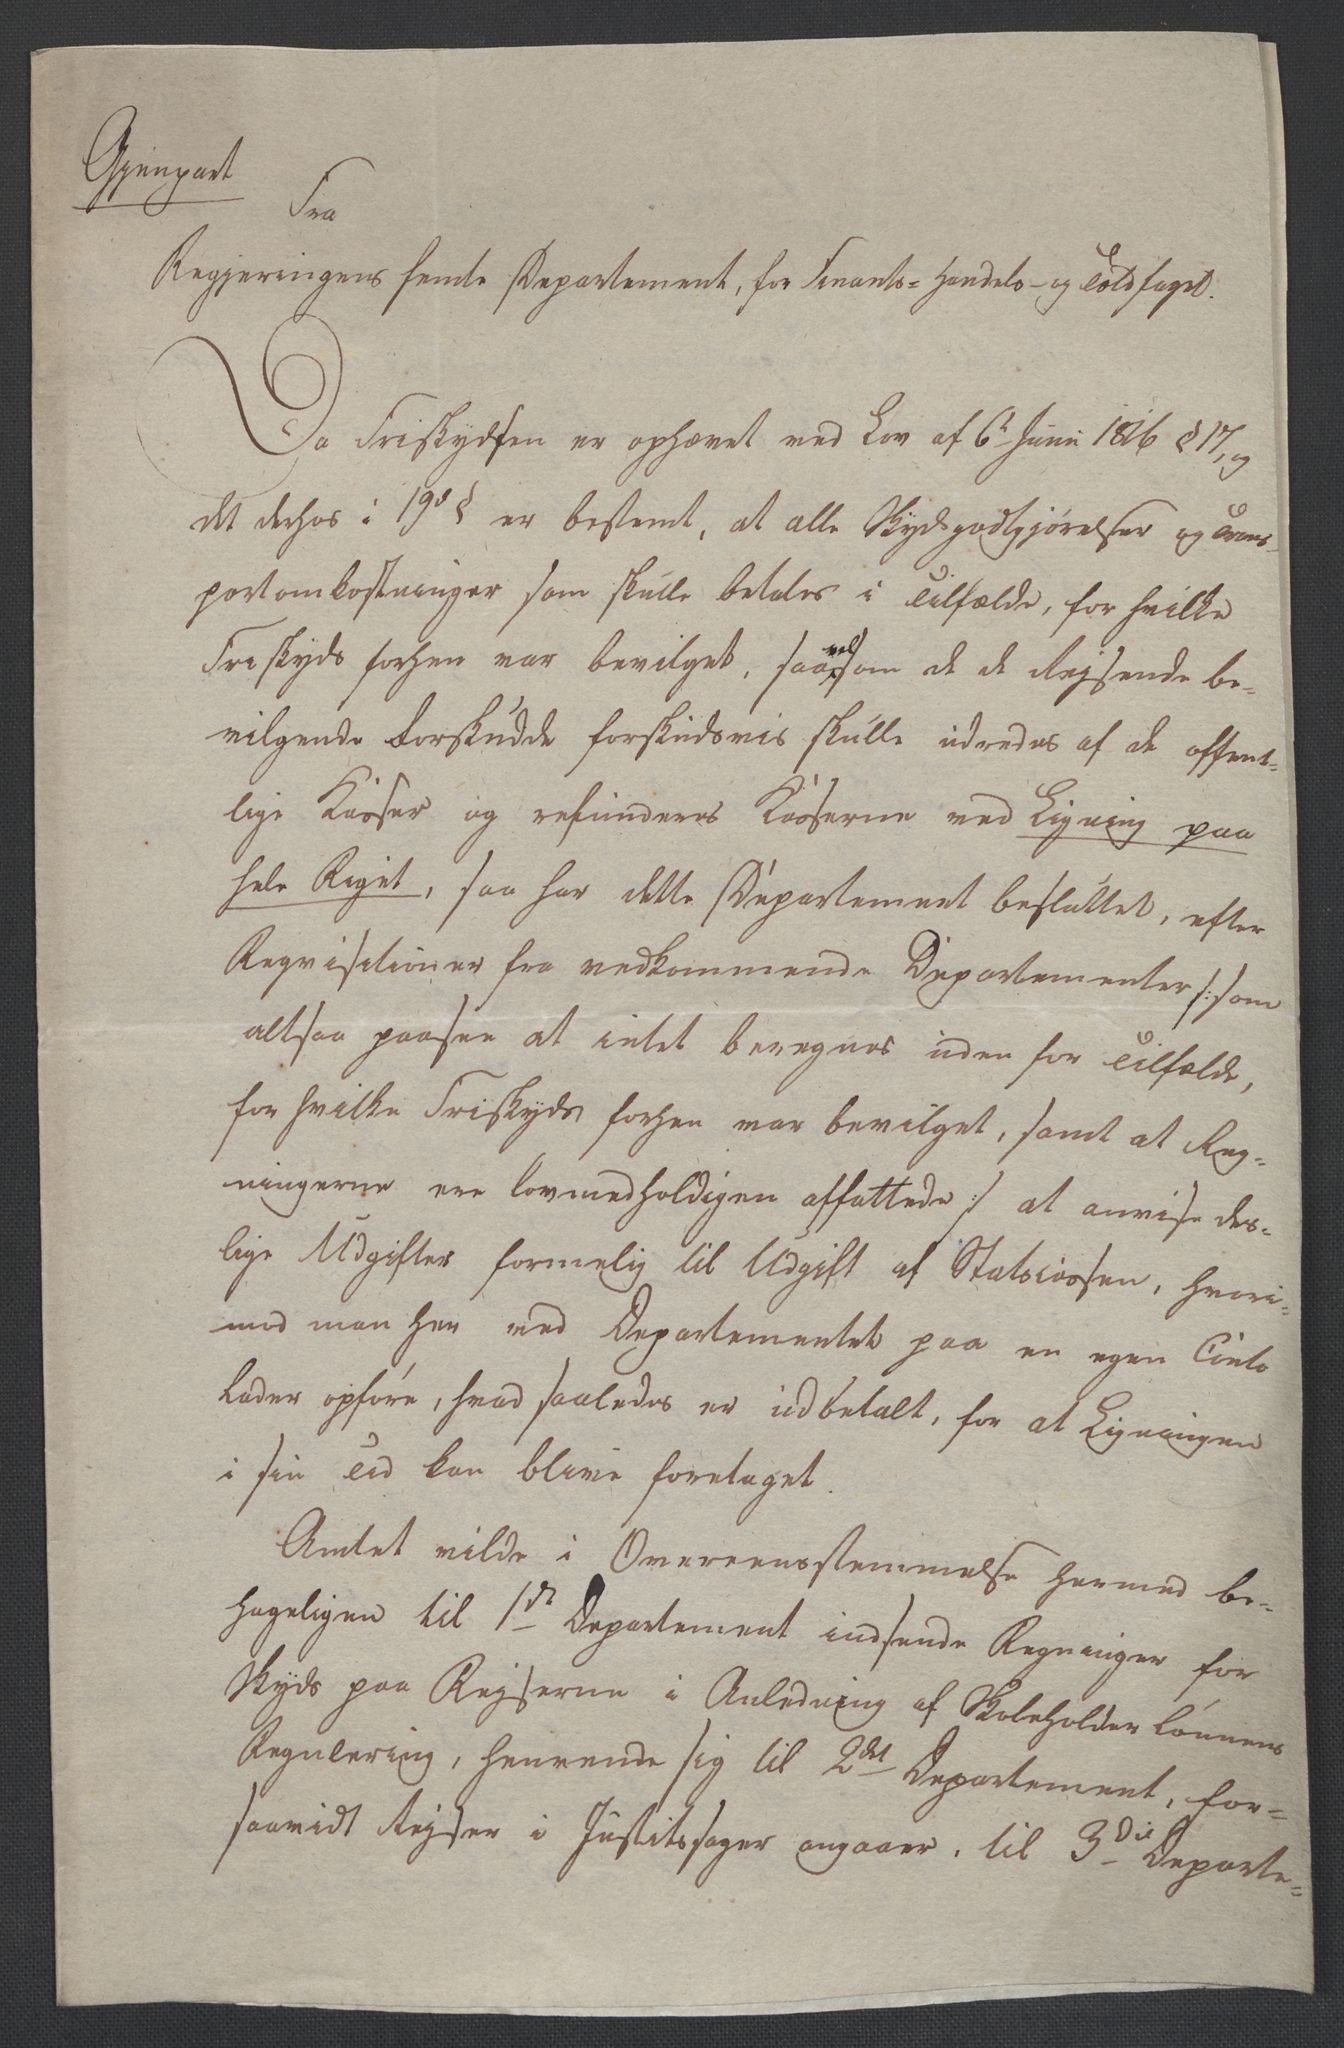 Gjenpart
Fra
Regjeringens femte Departement, for Finants- Handels- og Toldfaget.
Da Friskydsen er ophævet ved Lov af 6te Juni 1816 § 17, og
det derhos i 19de § er bestemt, at alle Skydsgodtgjørelser og Trans-
portomkostninger som skulle betales i Tilfælde, for hvilke
Friskyds forhen var bevilget, saavelsom de de Rejsende be-
vilgende Forskudde forskudsvis skulle udredes af de offent-
lige Kasser og refunderes Kasserne ved Ligning paa
hele Riget, saa har dette Departement besluttet, efter
Reqvisitioner fra vedkommende Departementer /: som
altsaa paasee at intet beregnes uden for Tilfælde,
for hvilke Friskyds forhen var bevilget, samt at Reg-
ningerne ere lovmedholdigen affattede :/ at anvise des-
lige Udgifter formelig til Udgift af Statscassen, hvori-
mod man her ved Departementet paa en egen Conto
lader opføre, hvad saaledes er udbetalt, for at Ligningen
i sin Tid kan blive foretaget.
Amtet vilde i Overeensstemmelse hermed be-
hageligen til 1ste Departement indsende Regninger for
Skyds paa Rejserne i Anledning af Skoleholder Lønnens
Regulering, henvende sig til 2det Departement, for-
saavidt Rejser i Justitssager angaaer, til 3die Departe-